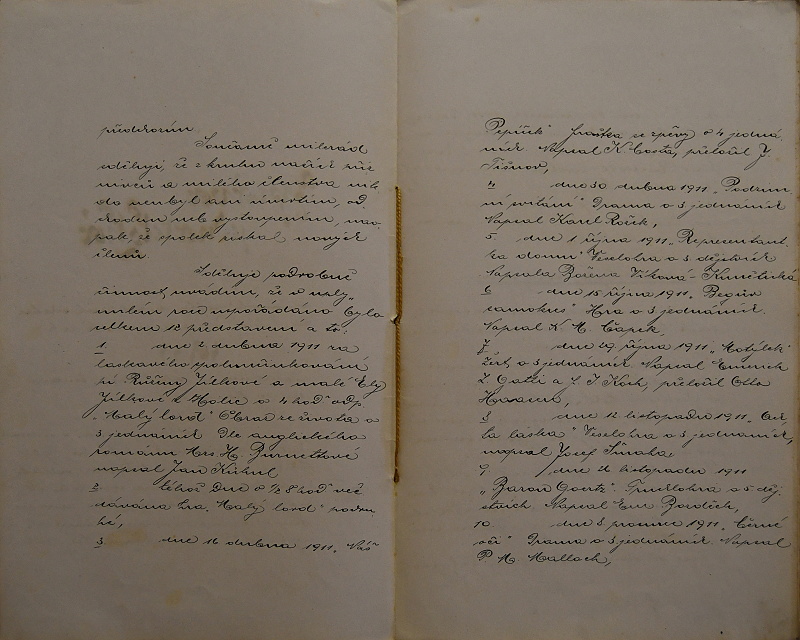 předešlým
Současně
sděluji, že z kruhu našich pří
znivců a milého členstva nik
do nezbyl ani úmrtím, od
chodem neb vystoupením, nao
pak, že spolek získal nových
členů.
Sděluje podrobně
činnost, uvádím, že v uply„
nulém roce uspořádáno bylo
celkem 12 představení a to:
1. dne 2. dubna 1911 za
laskavého spoluúčinkování
pí Růženy Jílkové a malé Ely
Jílkové z Holic o 4 hod. odp.
„Malý lord" Obraz ze života o
3 jednáních Dle anglického
románu Mrs. H. Burnettové
napsal Jan Kühnl
2. téhož dne o ½ 8 hod. več
dávána hra „Malý lord" podru„
hé,
3. dne 16 dubna 1911 „Náš
Pepíček" fraška se zpěvy o 4 jedná
ních Napsal K. Costa, přeložil J.
Tišnov,
4. dne 30 dubna 1911 „Podzim
ní svítání" Drama o 3 jednáních
Napsal Karel Rožek,
5. dne 1 října 1911 „Representant„
ka domu" Veselohra o 3 dějstvích
Napsala Božena Viková-Kunětická
6. dne 15 října 1911 „Begův
samokres" Hra o 3 jednáních.
Napsal K. M. Čapek,
7. dne 29 října 1911 „Motýlek"
Žert o 3 jednáních. Napsal Emerich
z Gatti a J. J. Koch, přeložil Otto
8. dne 12 listopadu 1911
láska" Veselohra o 3 jednáních,
napsal Josef Šmaha
9. dne 26 listopadu 1911
„Baron Goertz" Truchlohra o 5 děj„
stvích Napsal Em. Bozděch,
10. dne 8 prosince 1911 „Černé
oči" Drama o 3 jednáních. Napsal
P. M. Malloch,